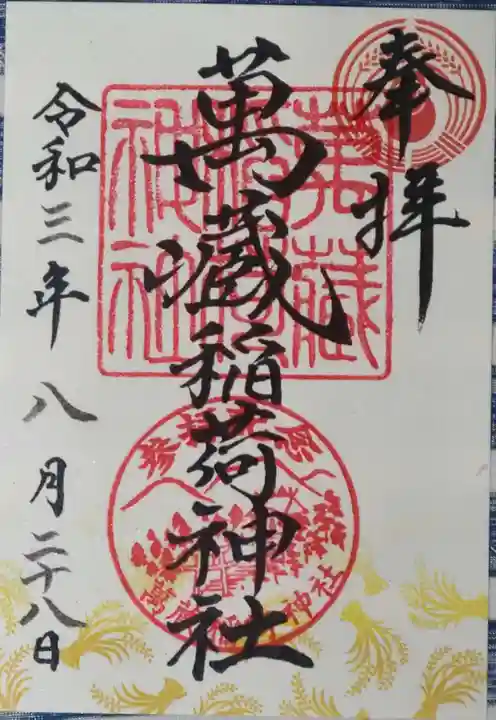 奉拝
萬蔵稲荷神社
令和三年 八月二十八日
萬藏
稲荷
神社
参拝記念
萬蔵稲荷神社